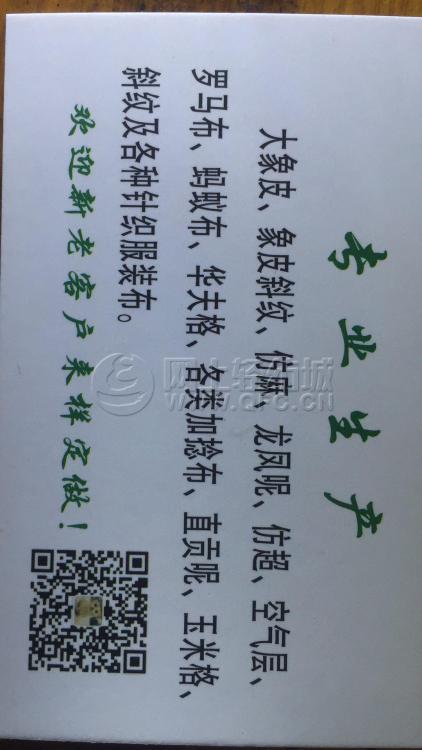 专业生产
大象皮、象皮斜纹、仿麻、龙凤呢、仿超、空气层、
罗马布、蚂蚁布、华夫格、各类加捻布、直贡呢、玉米格、
斜纹及各种针织服装布。
欢迎新老客户来样定做！
网上轻纺城
WWW.QFC.CN